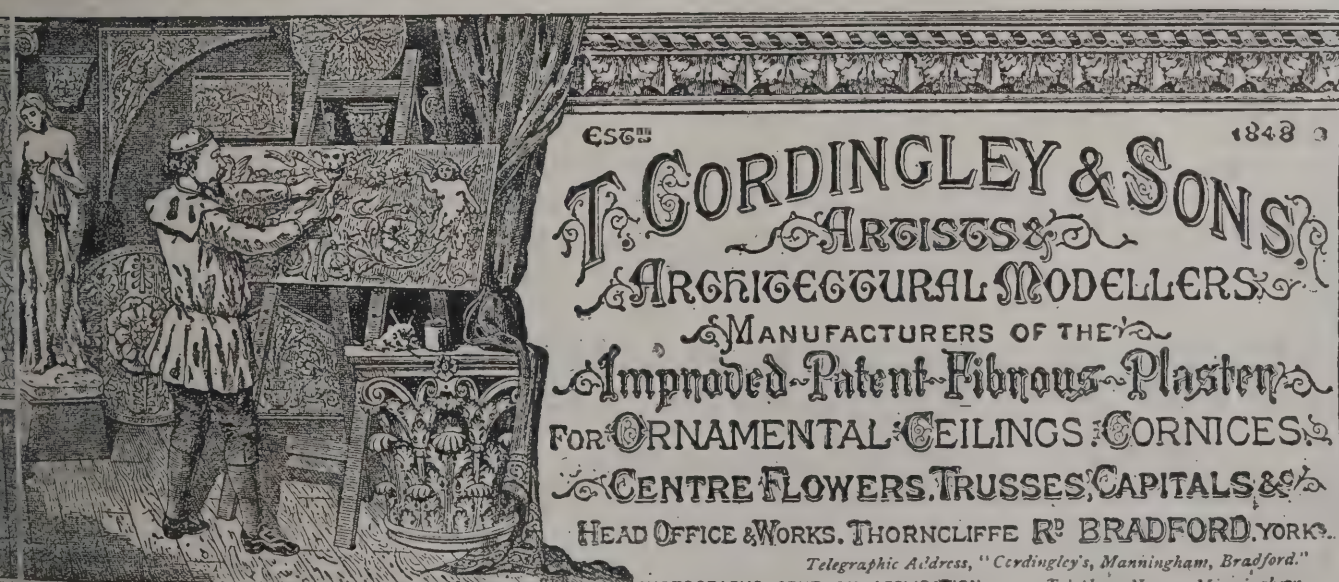 ESTD 1848
T. CORDINGLEY & SONS,
ARTISTS &
ARCHITECTURAL MODELLERS
MANUFACTURERS OF THE
Improved Patent Fibrous Plaster
FOR ORNAMENTAL CEILINGS CORNICES,
CENTRE FLOWERS, TRUSSES, CAPITALS &c
HEAD OFFICE & WORKS, THORNCLIFFE RD BRADFORD, YORKS.
Telegraphic Address, "Cordingley's, Manningham, Bradford."